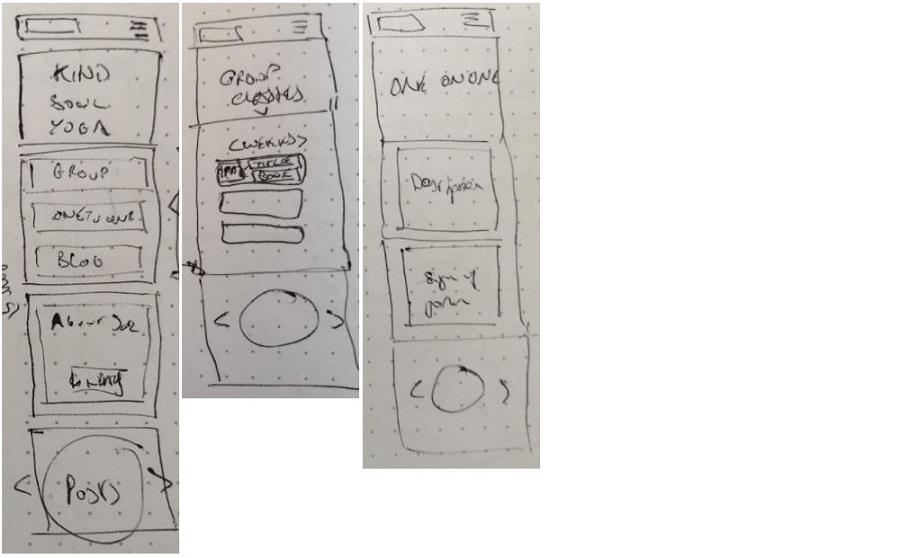 KIND
SOUL
YOGA
GROUP
ONETOONE
BLOG
About Joe
Posts
GROUP
CLASSES
<WEEKLY>
TITLE
BOOK
ONE ON ONE
Description
Sign up